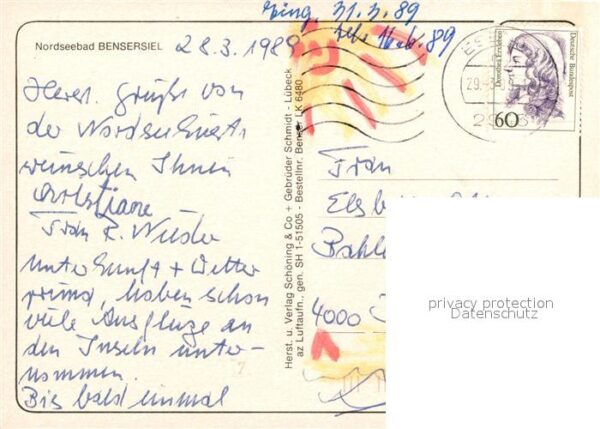 ging. 31.3.89
Nordseebad BENSERSIEL 28.3.1989
Herzl. Grüße von
der Nordseeküste
wünschen Ihnen
Christiane
Frau R. Wieder
Unterkunft + Wetter
prima, haben schon
viele Ausflüge an
den Inseln unter-
nommen.
Bis bald einmal
Herst. u. Verlag Schöning & Co + Gebrüder Schmidt - Lübeck
az Luftaufn., gen. SH 1-51505 - Bestellnr. Benser LK 6480
60
Dorothea Erxleben
Deutsche Bundespost
Frau
4000
privacy protection
Datenschutz